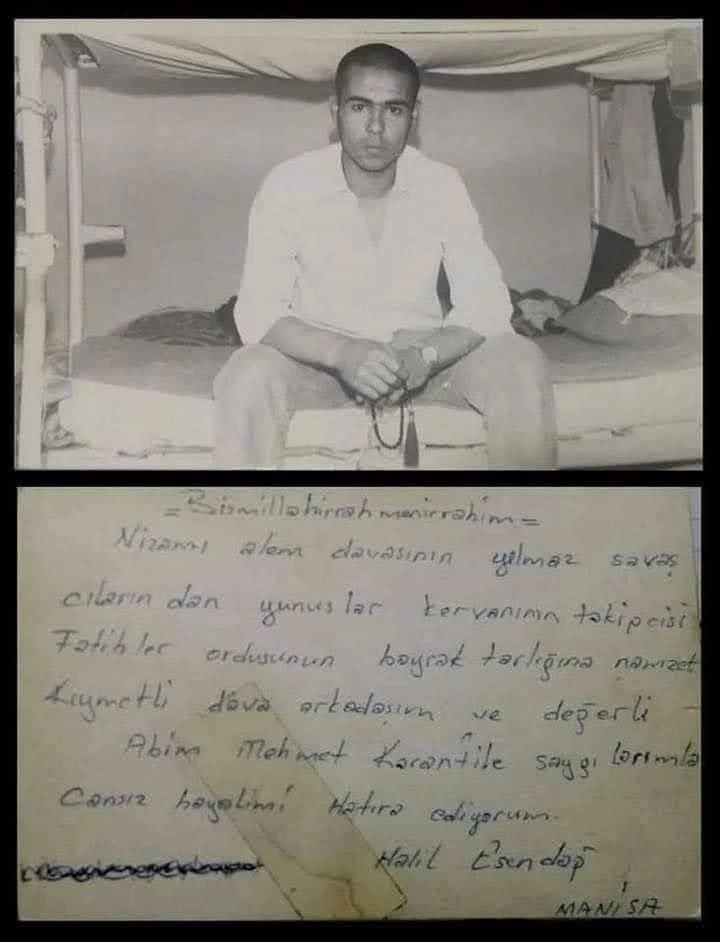 = Bismillahirrahmanirrahim =
Nizamı alem davasının yılmaz savaş
cıların dan yunuslar kervanının takipcisi
Fatihler ordusunun bayrak tarlığına namzet
Kıymetli dava arkadaşım ve değerli
Abim Mehmet saygılarımla
Cansız hayalimi Hatıra ediyorum.
Halil Esendağ
MANİSA